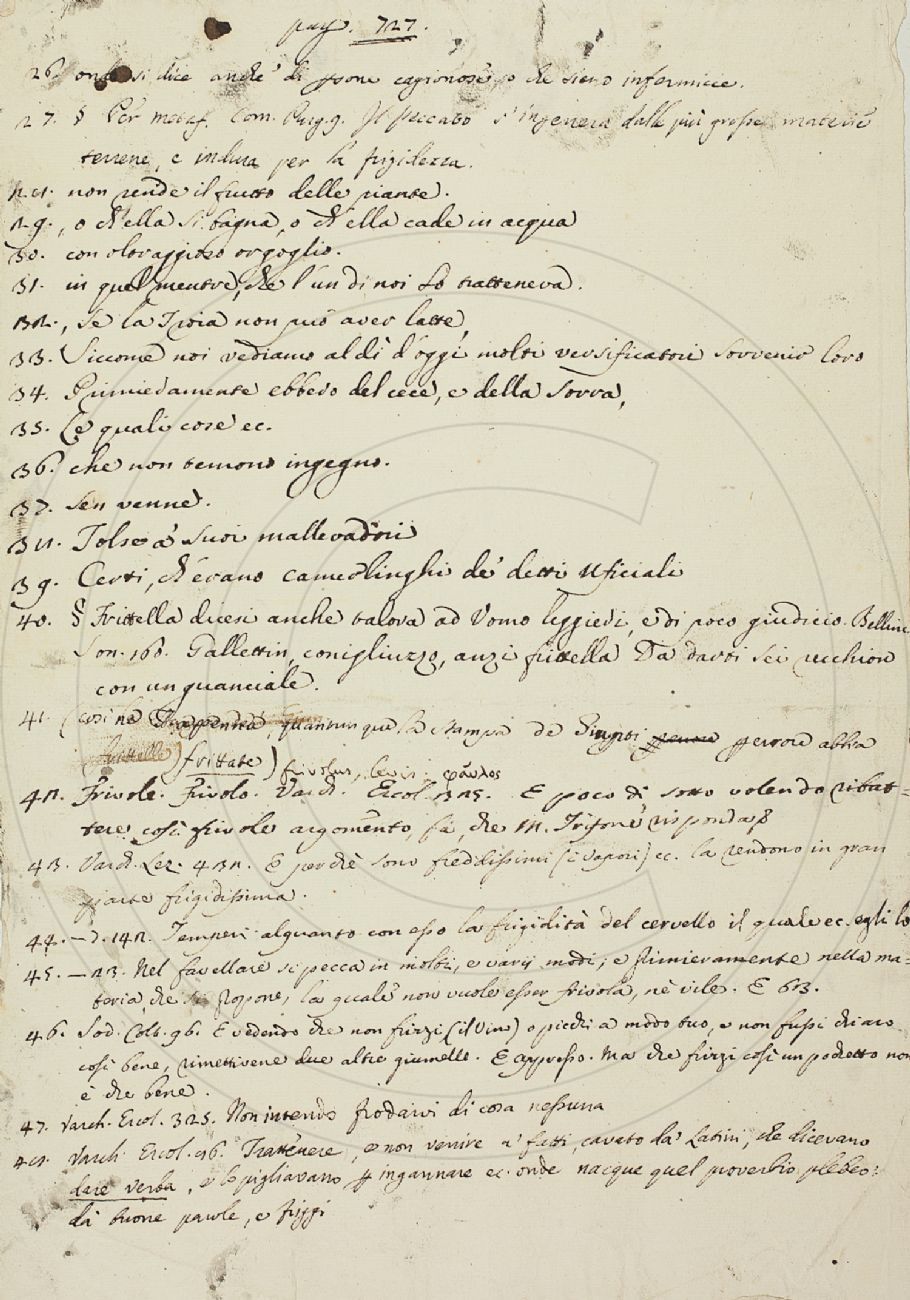 pag. 727.
26. onde si dice anche di psone cagionose, o che sieno infermicce.
27. § Per metaf. Com. Purg. 9. Il peccato s'ingenera dalle più grosse materie
terrene, e indura per la frigidezza.
28. non rende il frutto delle piante.
29., o ch'ella si bagna, o ch'ella cade in acqua
30. con oltraggioso orgoglio.
31. in quel mentre, che l'un di noi lo tratteneva.
32., se la Troia non può aver latte,
33. Siccome noi vediamo al dì d'oggi molti versificatori sovvenir loro
34. Primieramente ebbero del cece, e della sorra,
35. Le quali cose ec.
36. che non temono ingegno.
37. sen venne.
38. Tolse a' suoi mallevadori
39. Certi, ch'erano camerlinghi de' detti Uficiali
40. § Frittella dicesi anche talora ad Uomo leggieri, e di poco giudicio. Bellinc.
Son. 160. Gallettin, conigliuzzo, anzi frittella Da darti sei recchion
con un guanciale.
41. (così ne quantunque la stampa de' Giunti p errore abbia
(frittelle) frittate)
frivolus, levis: φαῦλος
42. Frivole. Frivolo. Varch. Ercol. 325. E poco di sotto volendo ribat=
tere così frivole argomento, fa, che M. Trifone risponda
43. Varch. Lez. 432. E perchè sono freddissimi (i vapori) ec. la rendono in gran
parte frigidissima.
44. — D. 142. Temperi alquanto con esso la frigidità del cervello il quale ec. egli lo
45. — 23. Nel favellare si pecca in molti, e varij modi, e primieramente nella ma=
teria, che si propone, la quale non vuole esser frivola, nè vile. E 613.
46. Sod. Colt. 96. E vedendo che non frizzi (il vino) o picchi a modo tuo, e non fussi chiaro
così bene, rimettivene due altre giumelle. E appresso. Ma che frizzi così un pochetto non
è che bene.
47. Varch. Ercol. 325. Non intendo frodarvi di cosa nessuna
48. Varch. Ercol. 96. Trattenere, e non venire a' fatti, cavato da' Latini, che dicevano
dare verba, e lo pigliavano p ingannare ec. onde nacque quel proverbio plebeo:
dà buone parole, e friggi